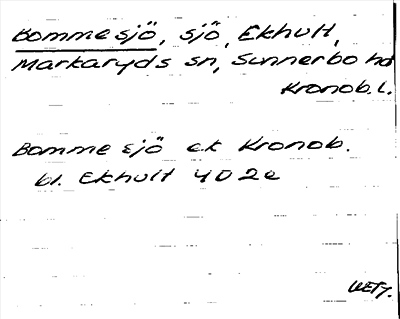 Bommesjö, sjö, Ekhult,
Markaryds sn, Sunnerbo hd
Kronob. l.
Bomme sjö ek Kronob.
bl. Ekhult 4D2e